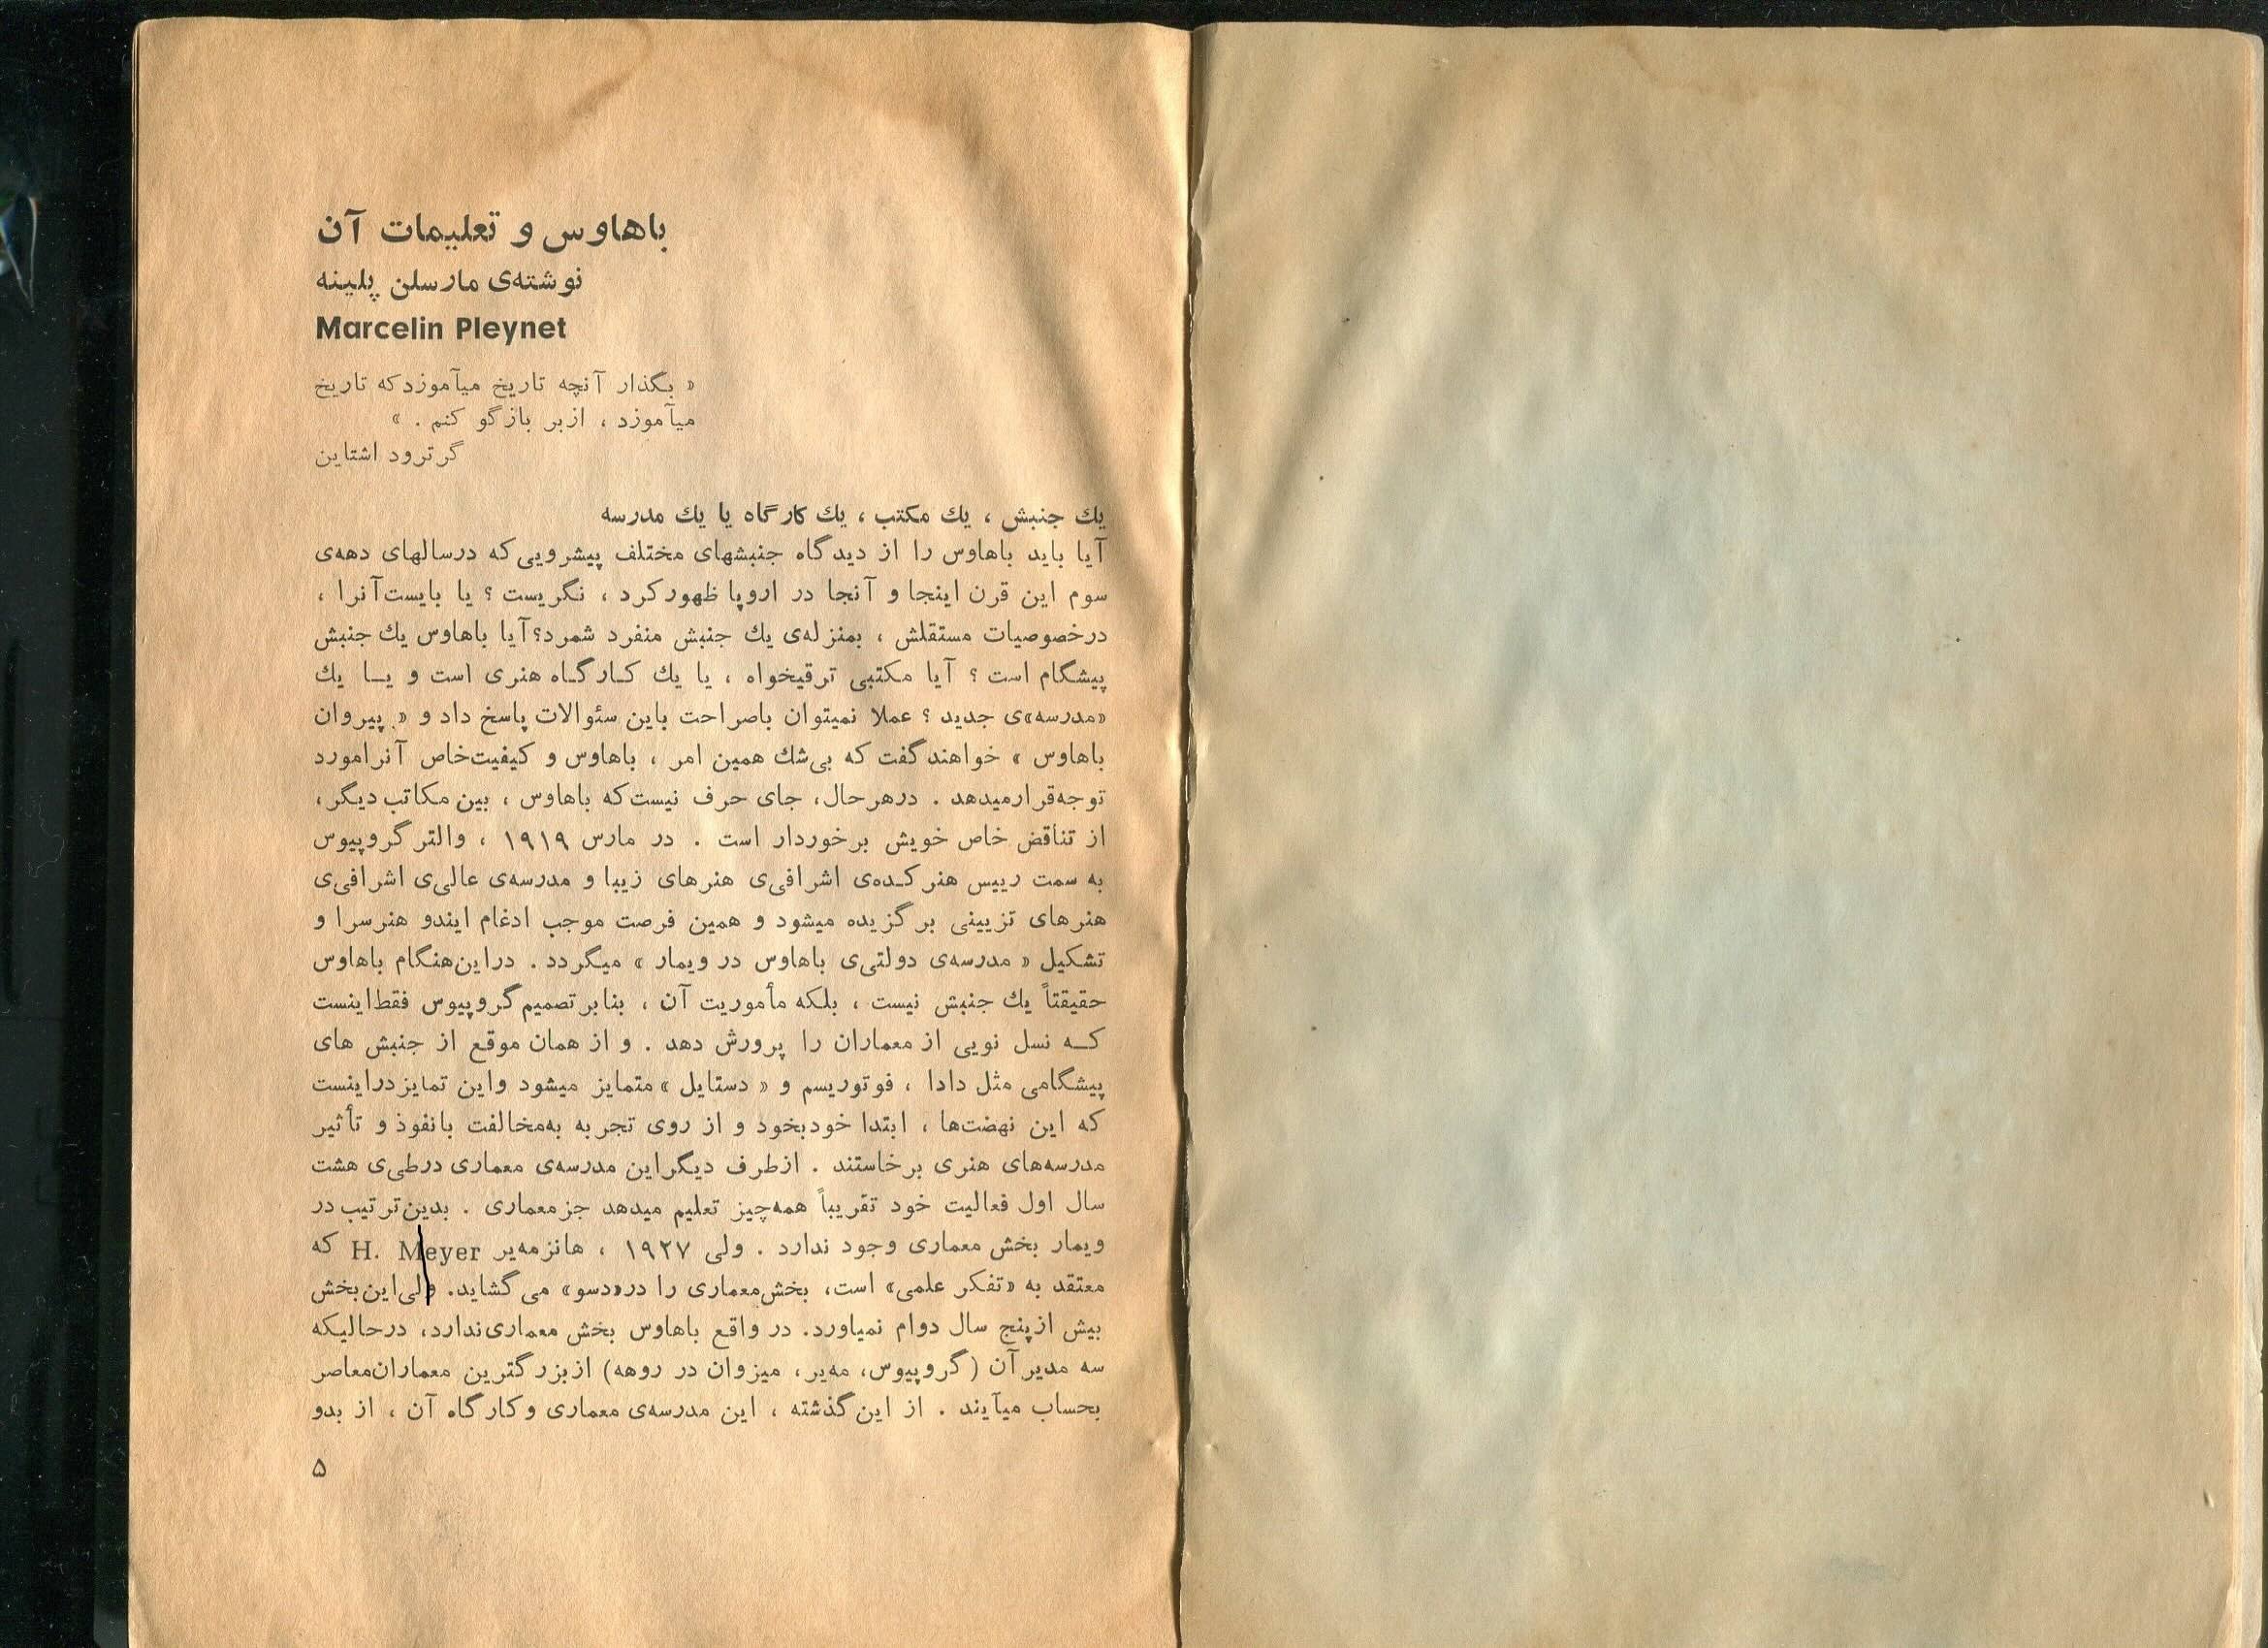 باهاوس و تعلیمات آن
نوشته‌ی مارسلن پلینه
Marcelin Pleynet
« بگذار آنچه تاریخ میآموزد که تاریخ
میآموزد ، ازبر بازگو کنم . »
گرترود اشتاین
يك جنبش ، يك مکتب ، يك کارگاه یا يك مدرسه
آیا باید باهاوس را از دیدگاه جنبشهای مختلف پیشرویی که درسالهای دهه‌ی
سوم این قرن اینجا و آنجا در اروپا ظهور کرد ، نگریست ؟ یا بایست آنرا ،
درخصوصیات مستقلش ، بمنزله‌ی يك جنبش منفرد شمرد؟ آیا باهاوس يك جنبش
پیشگام است ؟ آیا مکتبی ترقیخواه ، یا يك کـارگـاه هنری است و یـا يك
«مدرسه»ی جدید ؟ عملا نمیتوان باصراحت باین سئوالات پاسخ داد و « پیروان
باهاوس » خواهند گفت که بی‌شك همین امر ، باهاوس و کیفیت‌خاص آنرامورد
توجه‌قرارمیدهد . درهرحال، جای حرف نیست‌که باهاوس ، بین مکاتب دیگر،
از تناقض خاص خویش برخوردار است . در مارس ۱۹۱۹ ، والتر گروپیوس
به سمت رییس هنرکـده‌ی اشرافی‌ی هنرهای زیبا و مدرسه‌ی عالی‌ی اشرافی‌ی
هنرهای تزیینی برگزیده میشود و همین فرصت موجب ادغام ایندو هنرسرا و
تشکیل « مدرسه‌ی دولتی‌ی باهاوس در ویمار » میگردد . دراین‌هنگام باهاوس
حقیقتاً يك جنبش نیست ، بلکه مأموریت آن ، بنابر تصمیم گروپیوس فقط‌اینست
کـه نسل نویی از معماران را پرورش دهد . و از همان موقع از جنبش های
پیشگامی مثل دادا ، فوتوریسم و « دستایل » متمایز میشود واین تمایزدراینست
که این نهضت‌ها ، ابتدا خودبخود و از روی تجربه به‌مخالفت بانفوذ و تأثیر
مدرسه‌های هنری برخاستند . ازطرف دیگر این مدرسه‌ی معماری درطی‌ی هشت
سال اول فعالیت خود تقریباً همه‌چیز تعلیم میدهد جزمعماری . بدین‌ترتیب در
ویمار بخش معماری وجود ندارد . ولی ۱۹۲۷ ، هانزمه‌یر H. Meyer که
معتقد به «تفکر علمی» است، بخش‌معماری را در«دسو» می گشاید. ولی‌این‌بخش
بیش ازپنج سال دوام نمیاورد. در واقع باهاوس بخش معماری‌ندارد، درحالیکه
سه مدیر آن (گروپیوس، مه‌یر، میزوان در روهه) ازبزرگترین معماران‌معاصر
بحساب میآیند . از این گذشته ، این مدرسه‌ی معماری و کارگاه آن ، از بدو
۵